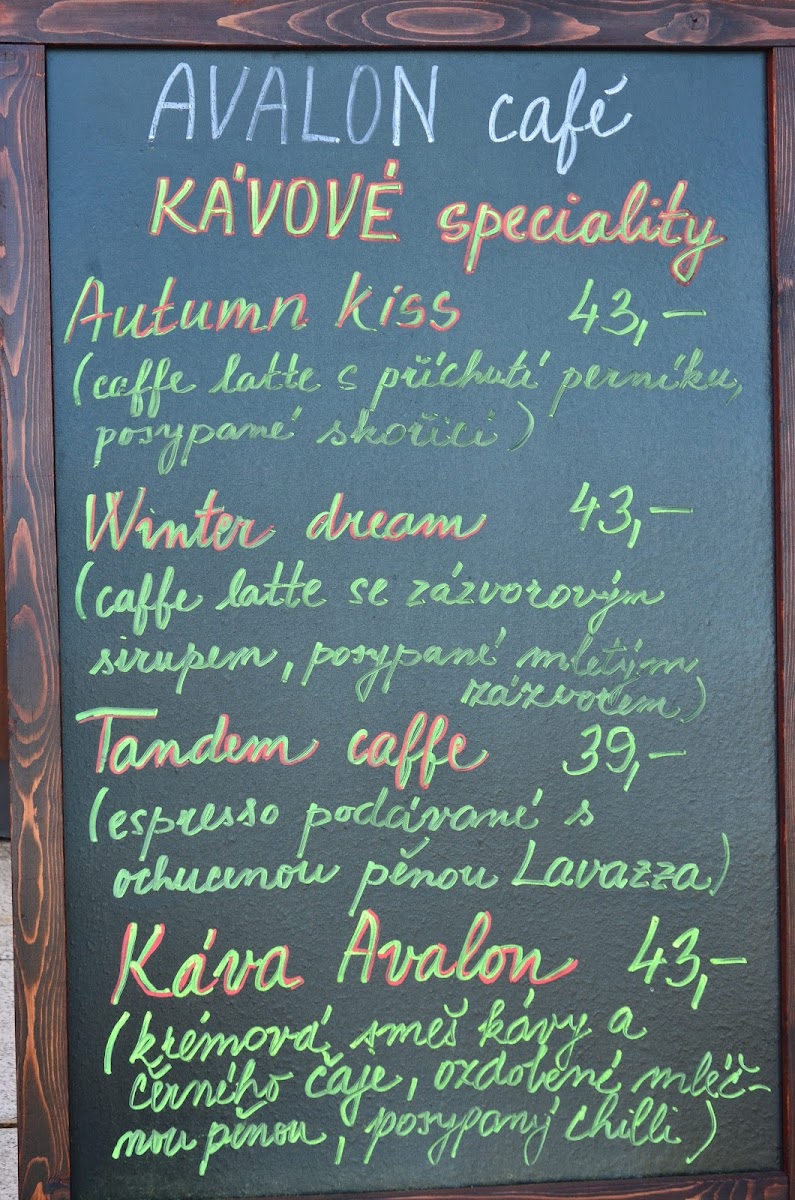 AVALON café
KÁVOVÉ speciality
Autumn kiss 43,-
(caffe latte s příchutí perníku,
posypané skořicí)
Winter dream 43,-
(caffe latte se zázvorovým
sirupem, posypané mletým
zázvorem)
Tandem caffe 39,-
(espresso podávané s
ochucenou pěnou Lavazza)
Káva Avalon 43,-
(krémová směs kávy a
černého čaje, ozdobené mléč-
nou pěnou, posypaný chilli)